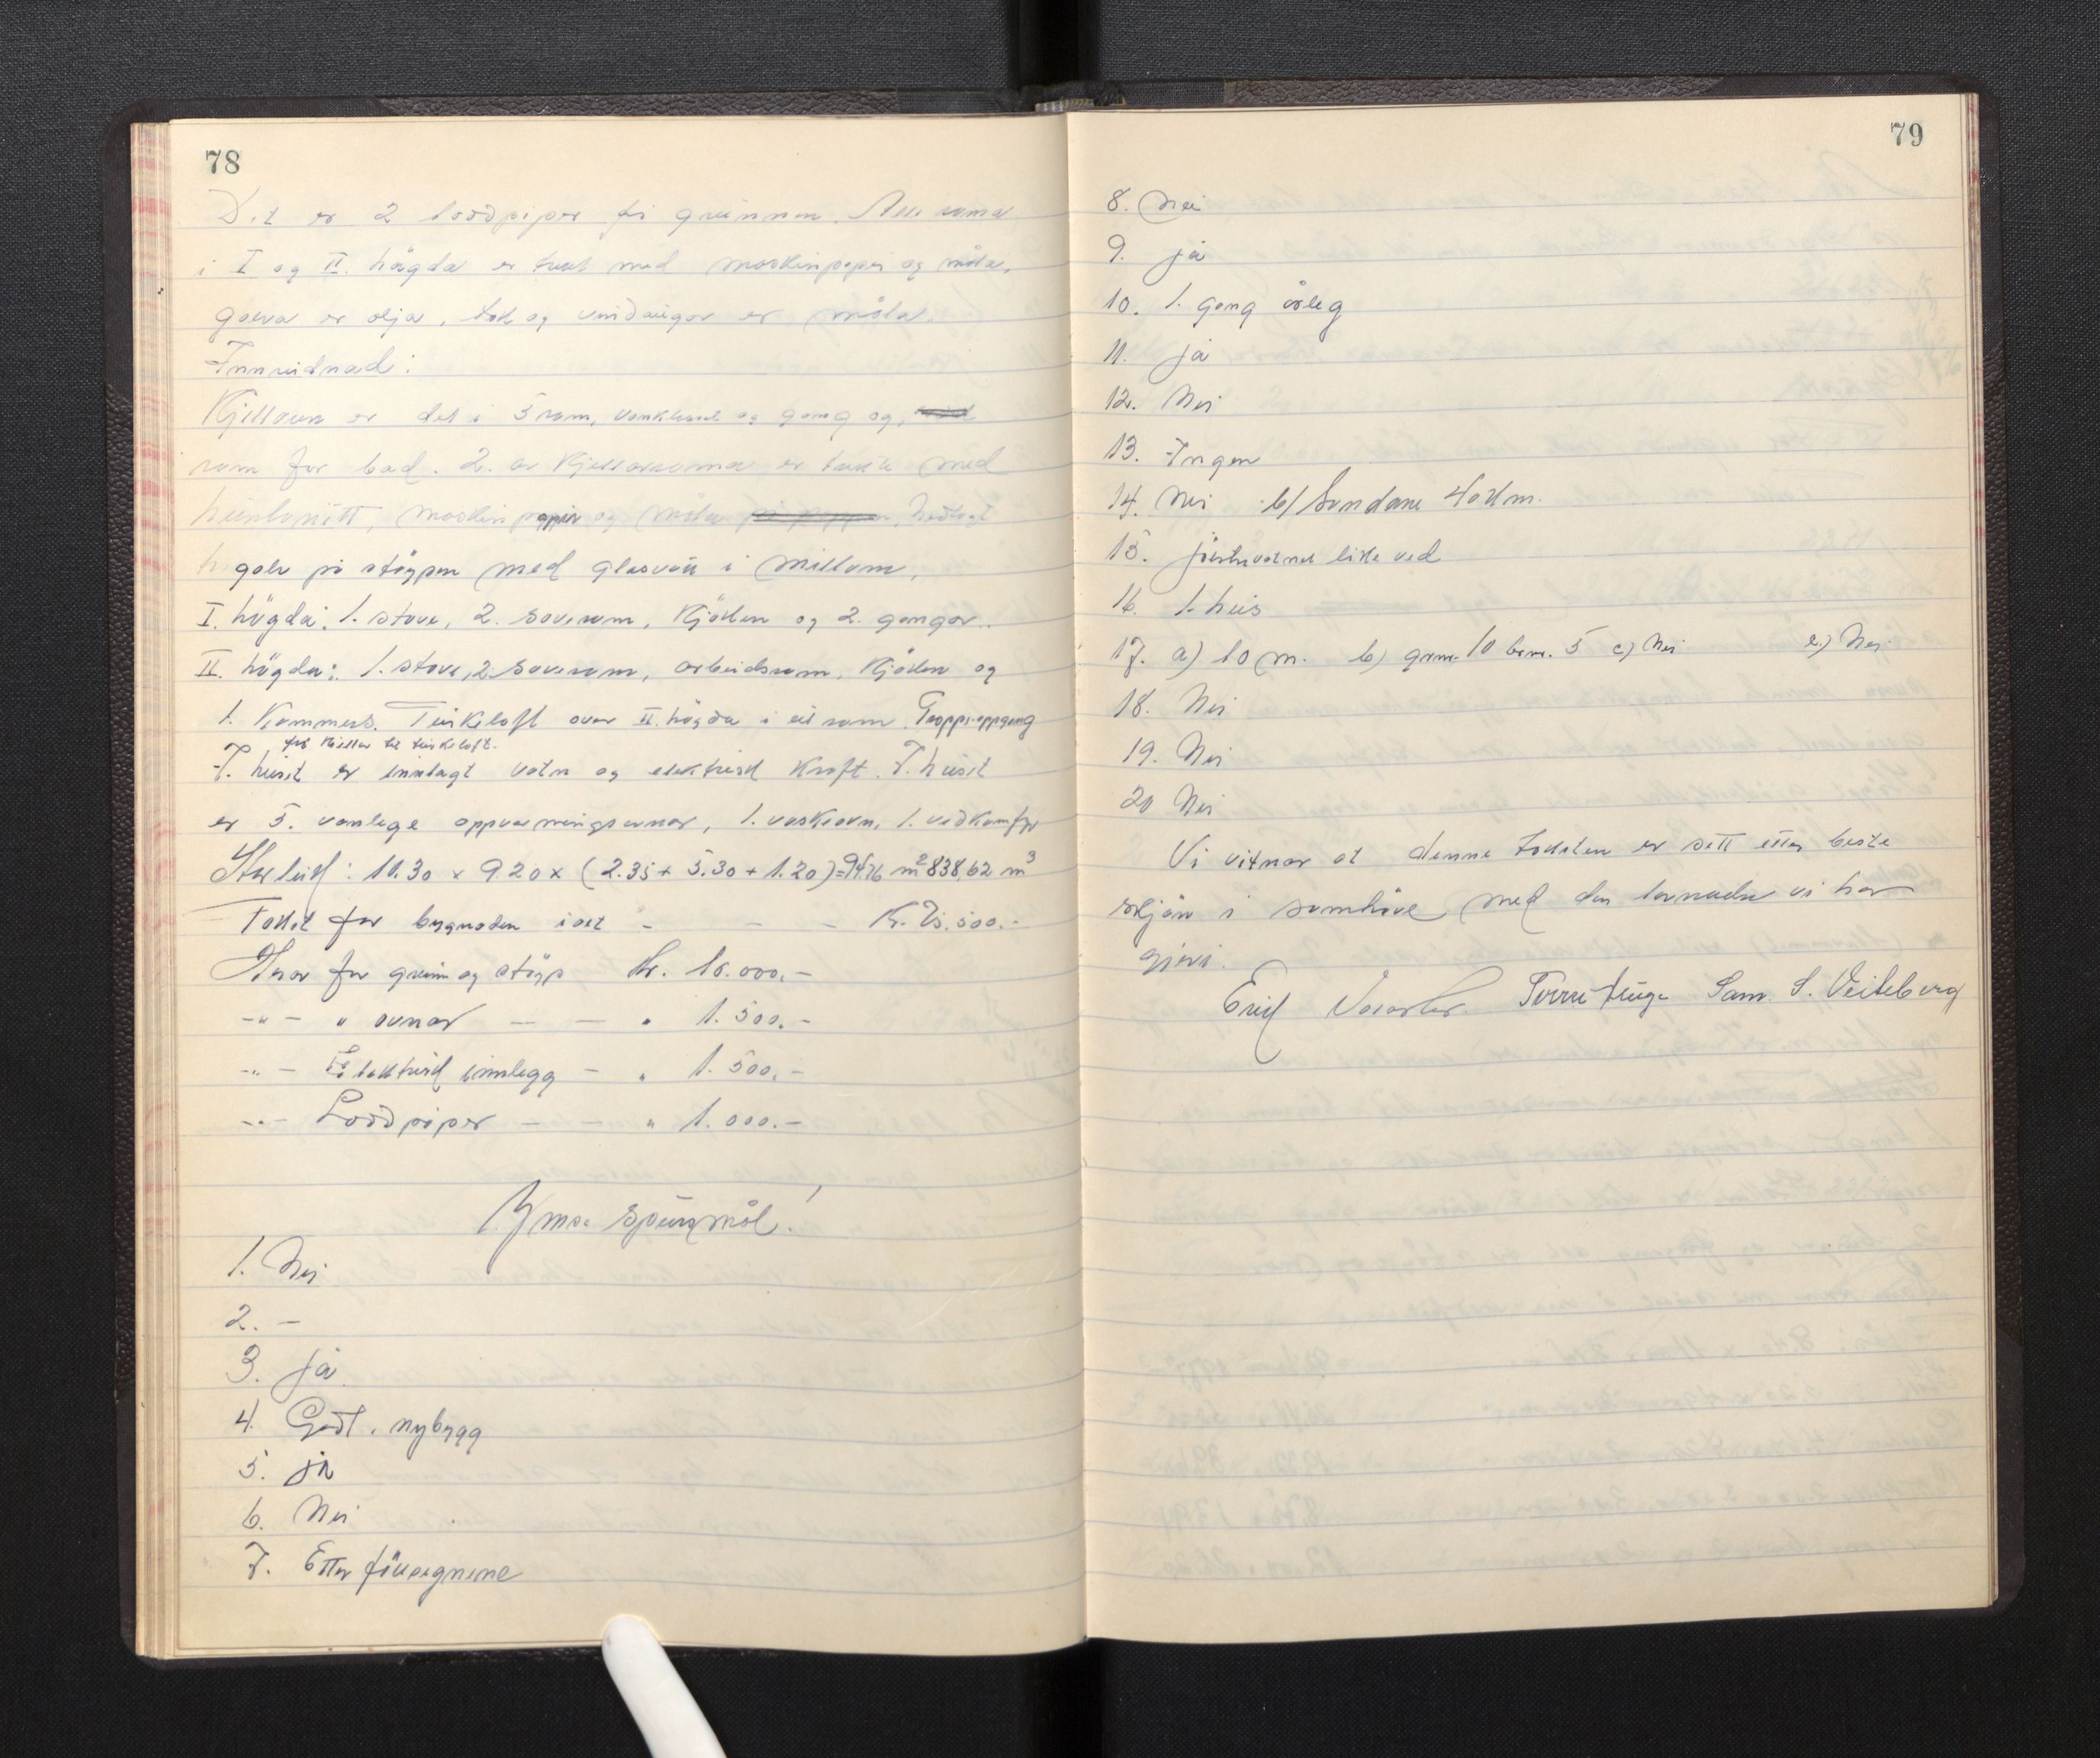 78
Det er 2 loddpiper frå grunnen. Alle roma
i I og II. högda er trekt med maskinpapir og måla.
golva er olja, tak og vindaugor er måla.
Innreidnad:
Kjellaren er det i 5 rom, vaskhus og gang og,
rom for bad. 2. av kjellarroma er trekte med
huntonitt, maskinpappir og måla
golv på støypen med glasvatt i millom.
I. högda: 1. stove, 2. soverom, Kjöken og 2. gangar.
II. högda: 1. stove, 2. soverom, arbeidsrom, Kjöken og
1. Kammers. Turkeloft over II. högda i eit rom. Trappe-oppgang
frå Kjellar til turkeloft.
I. huset er innlagt vatn og elektrisk kraft. I. huset
er 5. vanlege oppvarmingsovnar, 1. vaskeovn, 1. vedkomfyr
Storleik: 10.30 x 9.20 x (2.35 + 5.30 + 1.20) = 94.76 m² 838,62 m³
Takst for bygnaden i alt - - - Kr. 75.500.-
Herav for grunn og støyp Kr. 10.000.-
-"- " ovnar - - " 1.500.-
-"- Elektrisk innlegg - " 1.500.-
-"- Loddpiper - - " 1.000.-
Ymse spursmål!
1. Nei
2. -
3. ja
4. Godt. nybygg
5. ja
6. Nei
7. Etter föresegnene
79
8. Nei
9. ja
10. 1. gong årleg
11. ja
12. Nei
13. Ingen
14. Nei b/ Sandane 4 o km.
15. jölstravatnet like ved
16. 1. hus
17. a) 10 m. b) grm. 10 brm. 5 c) Nei e) Nei
18. Nei
19. Nei
20 Nei
Vi vitnar at denne taksten er sett etter beste
skjön i samhöve med den lovnaden vi har
gjevi.
Sam. S. Veiteberg